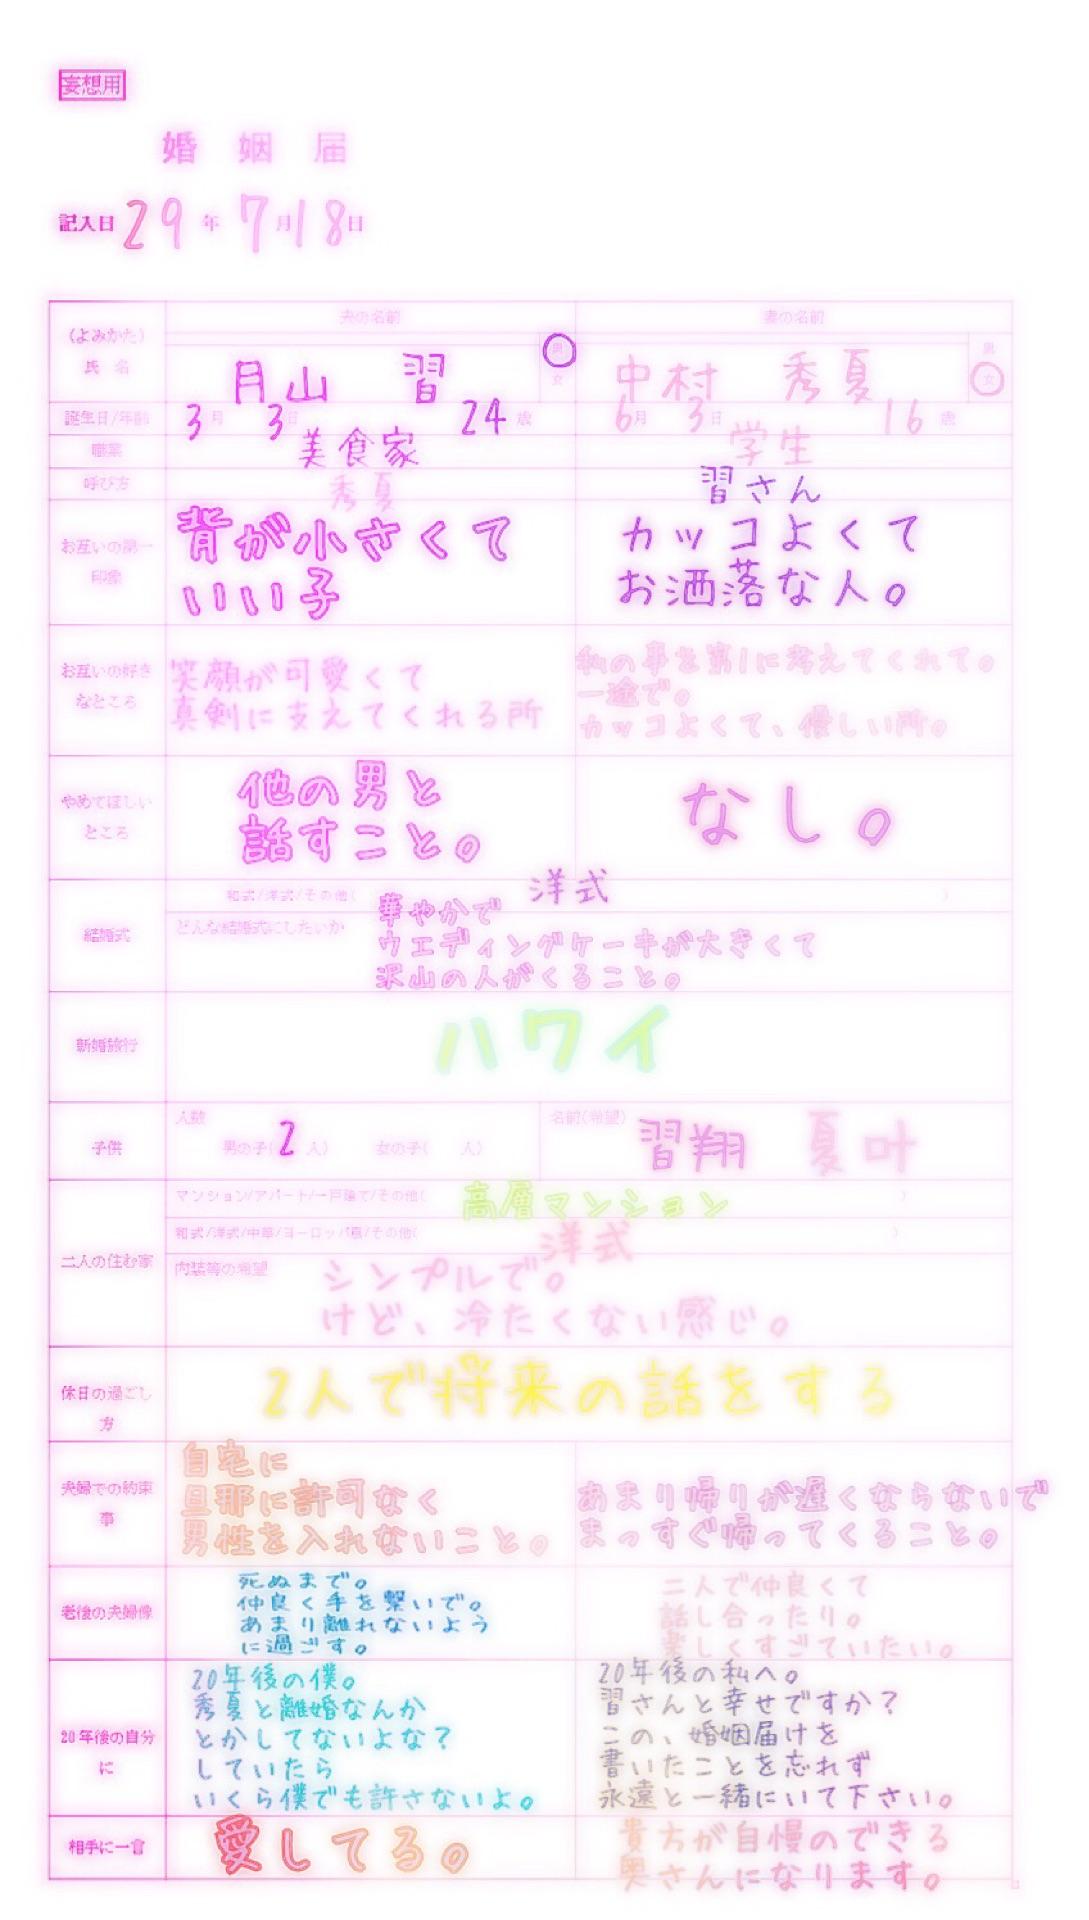 妄想用
婚姻届
記入日 29年 7月18日
(よみかた)
氏 名
夫の名前
妻の名前
月山 習
男
女
中村 秀夏
男
女
誕生日/年齢
3月 3日 24歳
6月 3日 16歳
職業
美食家
学生
呼び方
秀夏
習さん
お互いの第一
印象
背が小さくて
いい子
カッコよくて
お洒落な人。
お互いの好き
なところ
笑顔が可愛くて
真剣に支えてくれる所
私の事を第1に考えてくれて。
一途で。
カッコよくて、優しい所。
やめてほしい
ところ
他の男と
話すこと。
なし。
結婚式
和式/洋式/その他( 洋式 )
どんな結婚式にしたいか
華やかで
ウエディングケーキが大きくて
沢山の人がくること。
新婚旅行
ハワイ
子供
人数
男の子(2人) 女の子( 人)
名前(希望)
習翔 夏叶
二人の住む家
マンション/アパート/一戸建て/その他( 高層マンション )
和式/洋式/中華/ヨーロッパ風/その他( 洋式 )
内装等の希望
シンプルで。
けど、冷たくない感じ。
休日の過ごし
方
2人で将来の話をする
夫婦での約束
事
自宅に
旦那に許可なく
男性を入れないこと。
あまり帰りが遅くならないで
まっすぐ帰ってくること。
老後の夫婦像
死ぬまで。
仲良く手を繋いで。
あまり離れないよう
に過ごす。
二人で仲良くて
話し合ったり。
楽しくすごていたい。
20年後の自分
に
20年後の僕。
秀夏と離婚なんか
とかしてないよな?
していたら
いくら僕でも許さないよ。
20年後の私へ。
習さんと幸せですか?
この、婚姻届けを
書いたことを忘れず
永遠と一緒にいて下さい。
相手に一言
愛してる。
貴方が自慢のできる
奥さんになります。